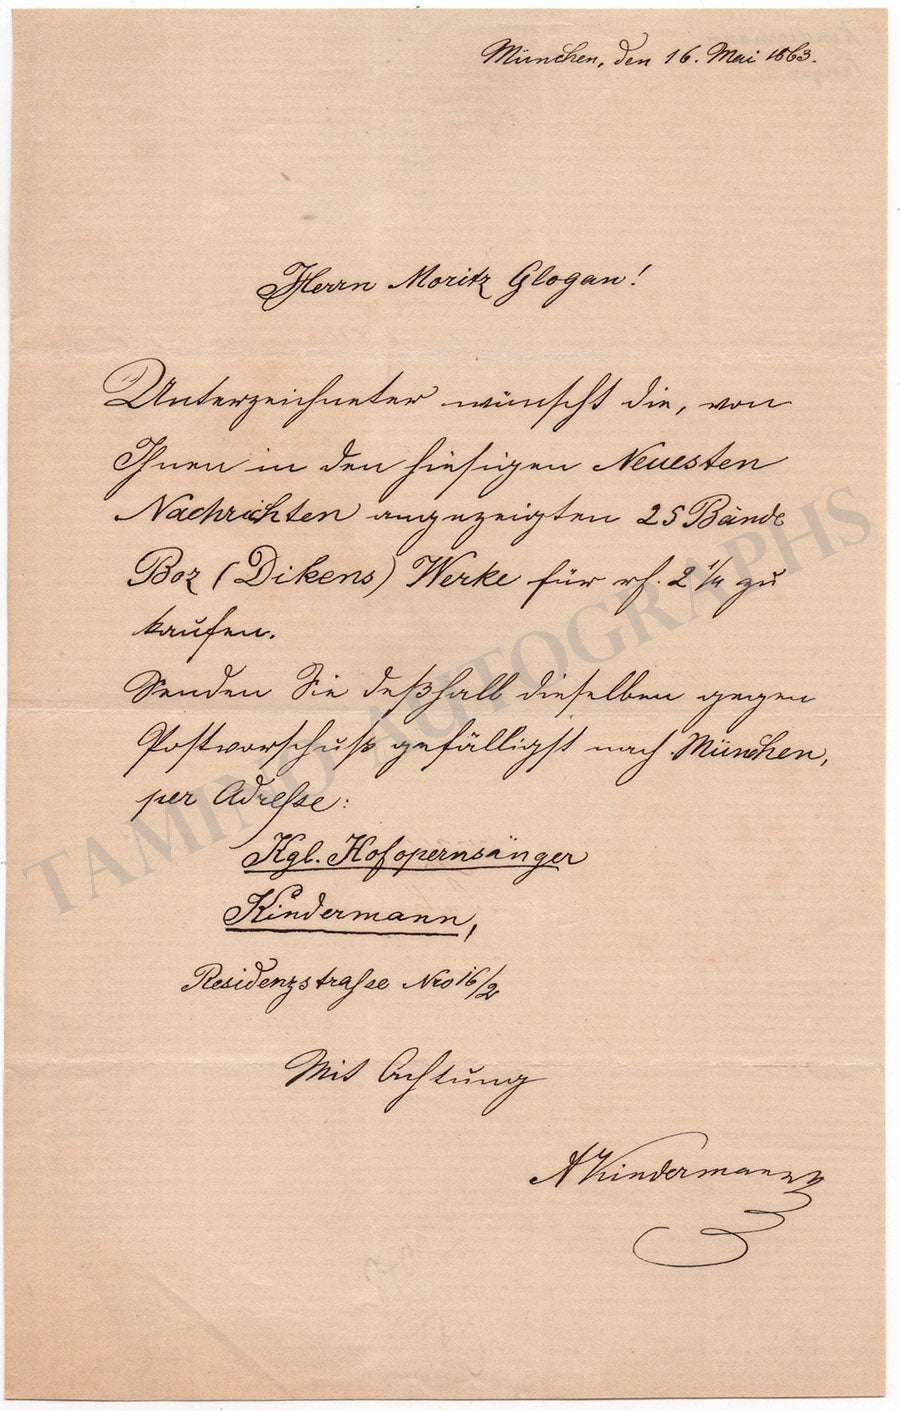 München, den 16. Mai 1863.
Herrn Moritz Glogau!
Unterzeichneter wünscht die, von
Ihnen in den hiesigen Neuesten
Nachrichten angezeigten 25 Bände
Boz (Dikens) Werke für rf. 2 1/4 zu
kaufen.
Senden Sie deßhalb dieselben gegen
Postvorschuß gefälligst nach München,
per Adresse:
Kgl. Hofopernsänger
Kindermann,
Residenzstrasse Nro 16/2
Mit Achtung
AKindermann
TAMINO AUTOGRAPHS